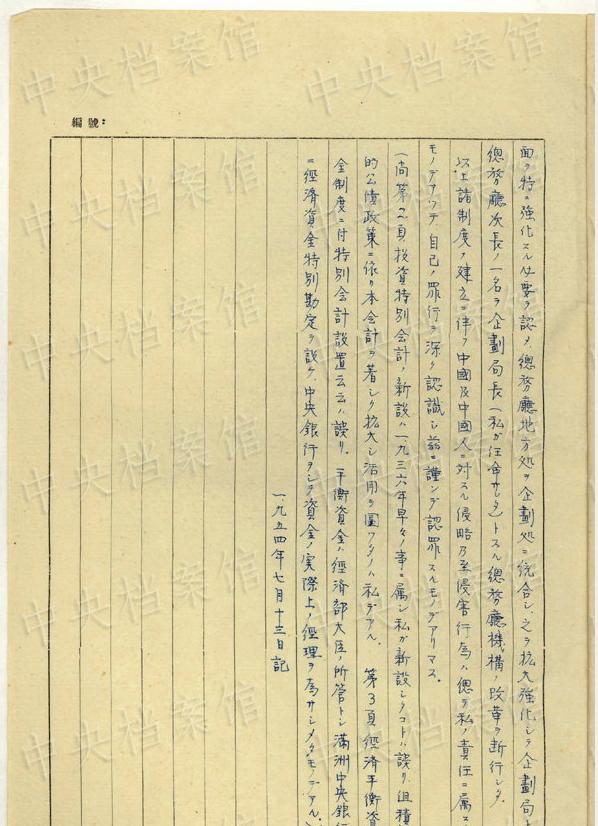 編號：
面ヲ特ニ強化スル必要ヲ認メ、總務廳地方処ヲ企劃処ニ統合シ、之ヲ拡大強化シテ企劃局ト
總務廳次長ノ一名ヲ企劃局長（私ガ任命サレタ）トスル總務廳機構ノ改革ヲ断行シタ。
以上諸制度ノ建立ニ伴フ中國及中國人ニ対スル侵略乃至侵害行為ハ總テ私ノ責任ニ属ス
モノデアツテ、自己ノ罪行ヲ深ク認識シ茲ニ謹ンデ認罪スルモノデアリマス。
（尚第2頁、投資特別会計ノ新設ハ一九三六年早々ノ事ニ属シ私ガ新設シタコトハ誤リ、組積
的公債政策ニ依リ本会計ヲ著シク拡大シ活用ヲ圖ツタノハ私デアル。　第3頁經済平衡資
金制度ニ付特別会計設置云云ハ誤リ。平衡資金ハ經済部大臣ノ所管トシ滿洲中央銀行
ニ經済資金特別勘定ヲ設ケ、中央銀行ヲシテ資金ノ実際上ノ經理ヲ為サシメタモノデアル。）
一九五四年七月十三日記
中央档案馆